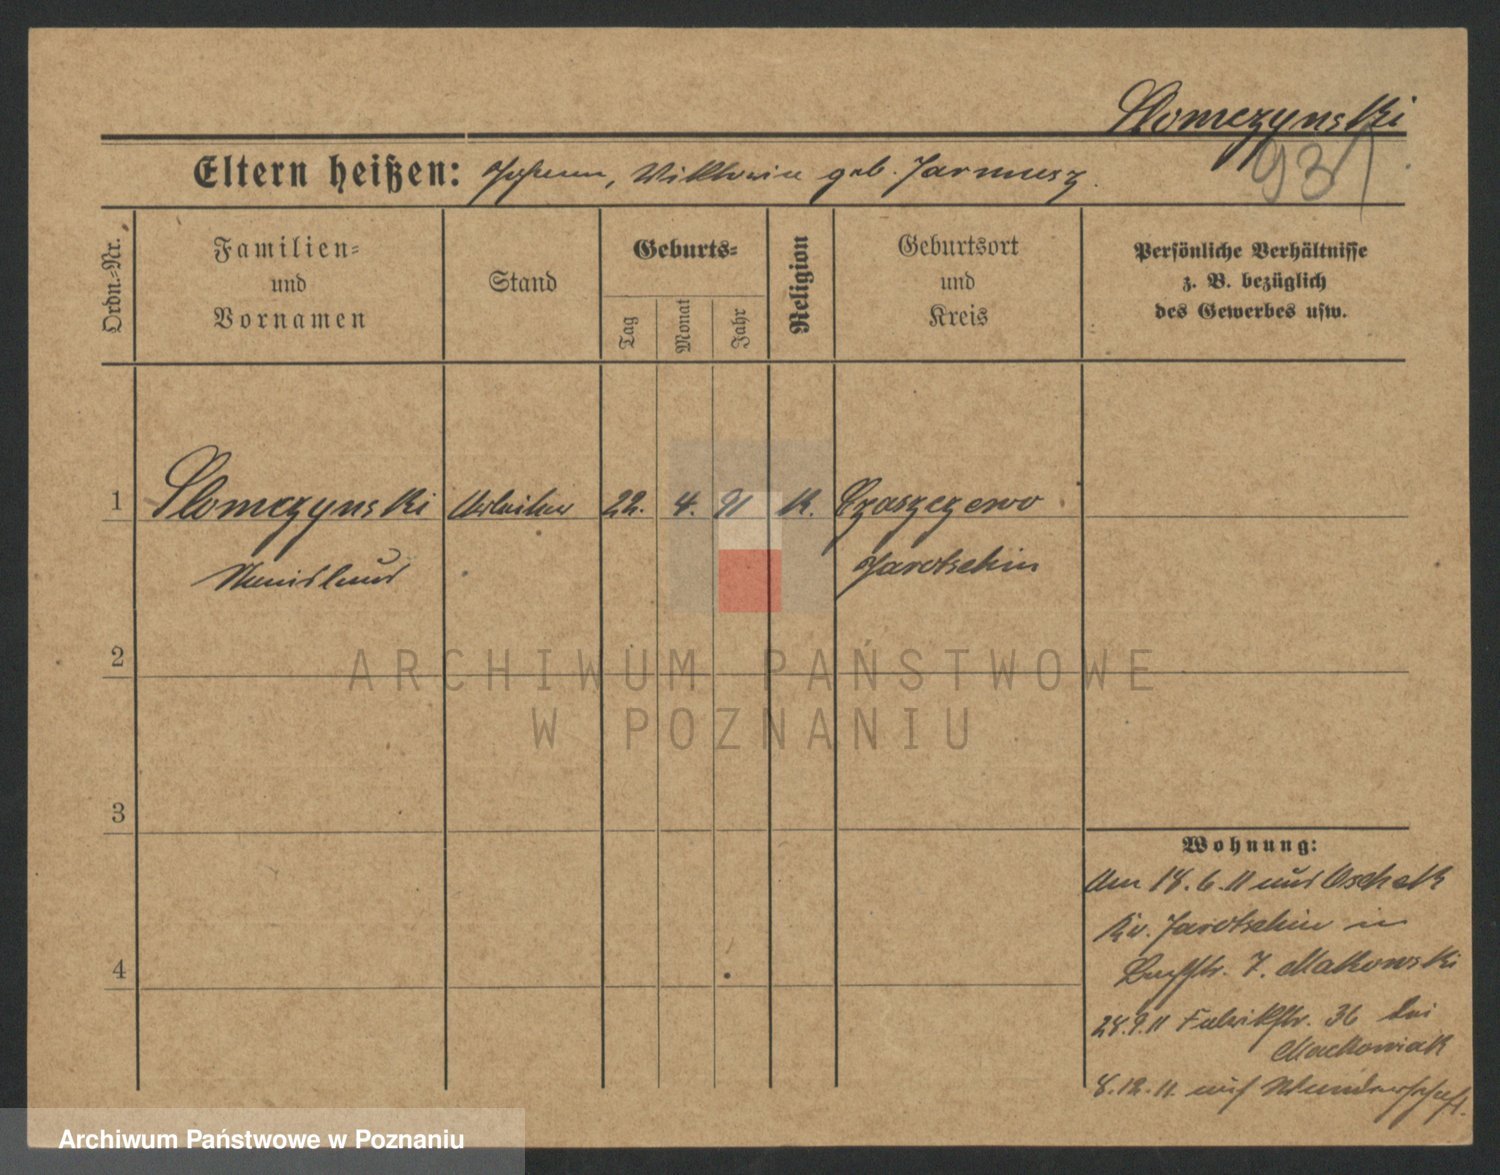 Slomczynski
93
Eltern heißen: Johann, Viktoria geb. Jarmusz.
Ordn.-Nr.
Familien-
und
Vornamen
Stand
Geburts-
Tag
Monat
Jahr
Religion
Geburtsort
und
Kreis
Persönliche Verhältnisse
z. B. bezüglich
des Gewerbes usw.
1
Slomczynski Arbeiter 22. 4. 91 K.
Stanislaus Jarotschin
2
ARCHIWUM PAŃSTWOWE
W POZNANIU
3
4
Wohnung:
Am 18.6.11 aus
Kr. Jarotschin in
7. Makowski
28.9.11 Fabrikstr. 36 bei
Mackowiak
8.12.11. auf Wanderschaft.
Archiwum Państwowe w Poznaniu